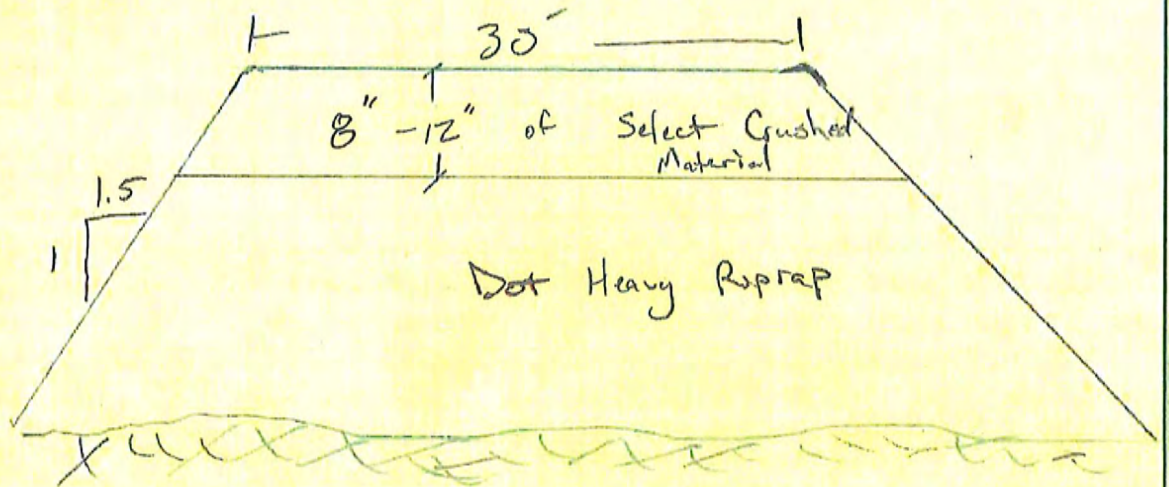 30'
8" -12" of Select Crushed
Material
1.5
1
Dot Heavy Riprap